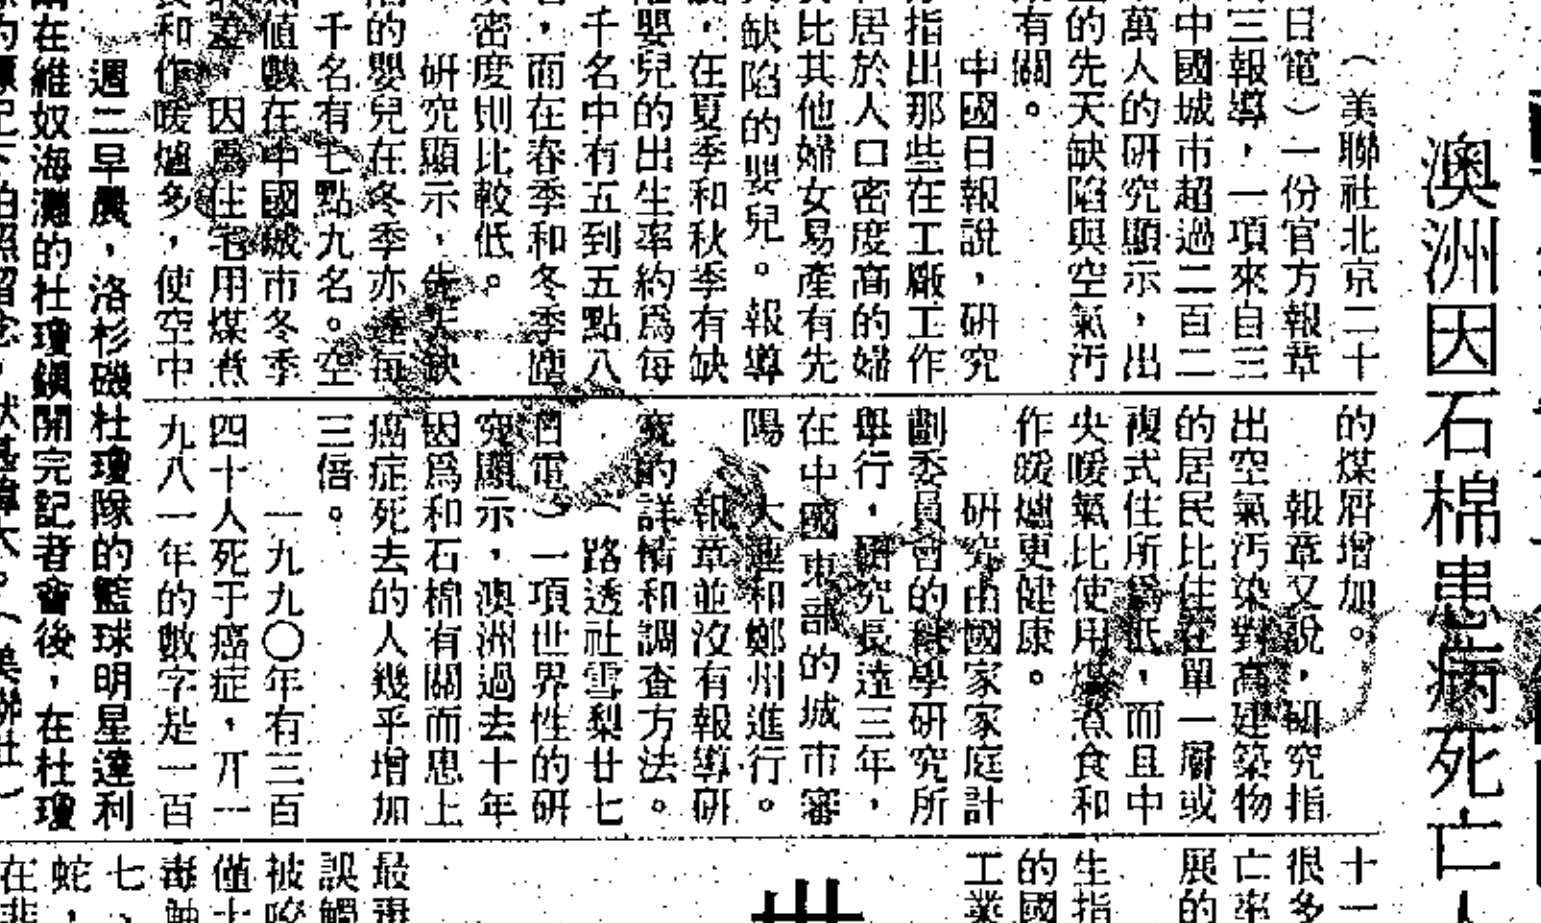 澳洲因石棉患病死亡人
（美聯社北京二十
日電）一份官方報章
三報導，一項來自三
中國城市超過二百二
萬人的研究顯示，出
的先天缺陷與空氣汚
有關。
中國日報說，研究
指出那些在工廠工作
居於人口密度高的婦
比其他婦女易產有先
缺陷的嬰兒。報導
，在夏季和秋季有缺
嬰兒的出生率約爲每
千名中有五到五點八
，而在春季和冬季塵
密度則比較低。
研究顯示，先天缺
的嬰兒在冬季亦達每
千名有七點九名。空
值數在中國城市冬季
差，因爲住宅用煤煮
和作暖爐多，使空中
的煤屑增加。
報章又說，研究指
出空氣汚染對高建築物
的居民比住在單一層或
複式住所爲低，而且中
央暖氣比使用煤煮食和
作暖爐更健康。
研究由國家家庭計
劃委員會的科學研究所
舉行，研究長達三年，
在中國東部的城市審
陽、大連和鄭州進行。
報章並沒有報導研
究的詳情和調查方法。
（路透社雪梨廿七
日電）一項世界性的研
究顯示，澳洲過去十年
因爲和石棉有關而患上
癌症死去的人幾乎增加
三倍。
一九九〇年有三百
四十人死于癌症，而一
九八一年的數字是一百
週二早晨，洛杉磯杜瓊隊的籃球明星達利
在維奴海灘的杜瓊鎮開完記者會後，在杜瓊
十一
很多
亡率
展的
生指
的國
工業
最
誤觸
被咬
僅十
毒
七、
蛇，
在非